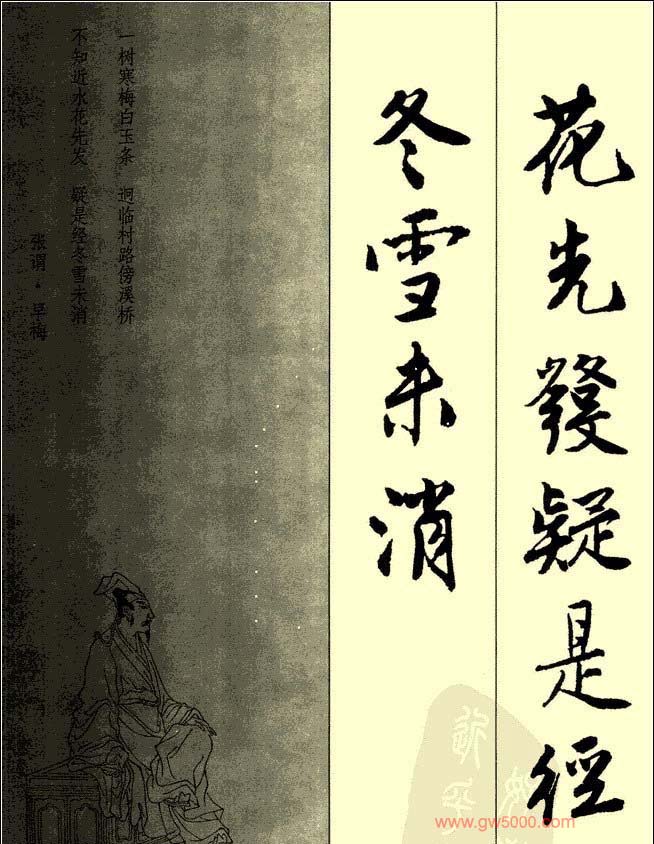 花先發疑是徑
冬雪未消
一树寒梅白玉条 迥临村路傍溪桥
不知近水花先发 疑是经冬雪未消
张谓·早梅
www.gw5000.com